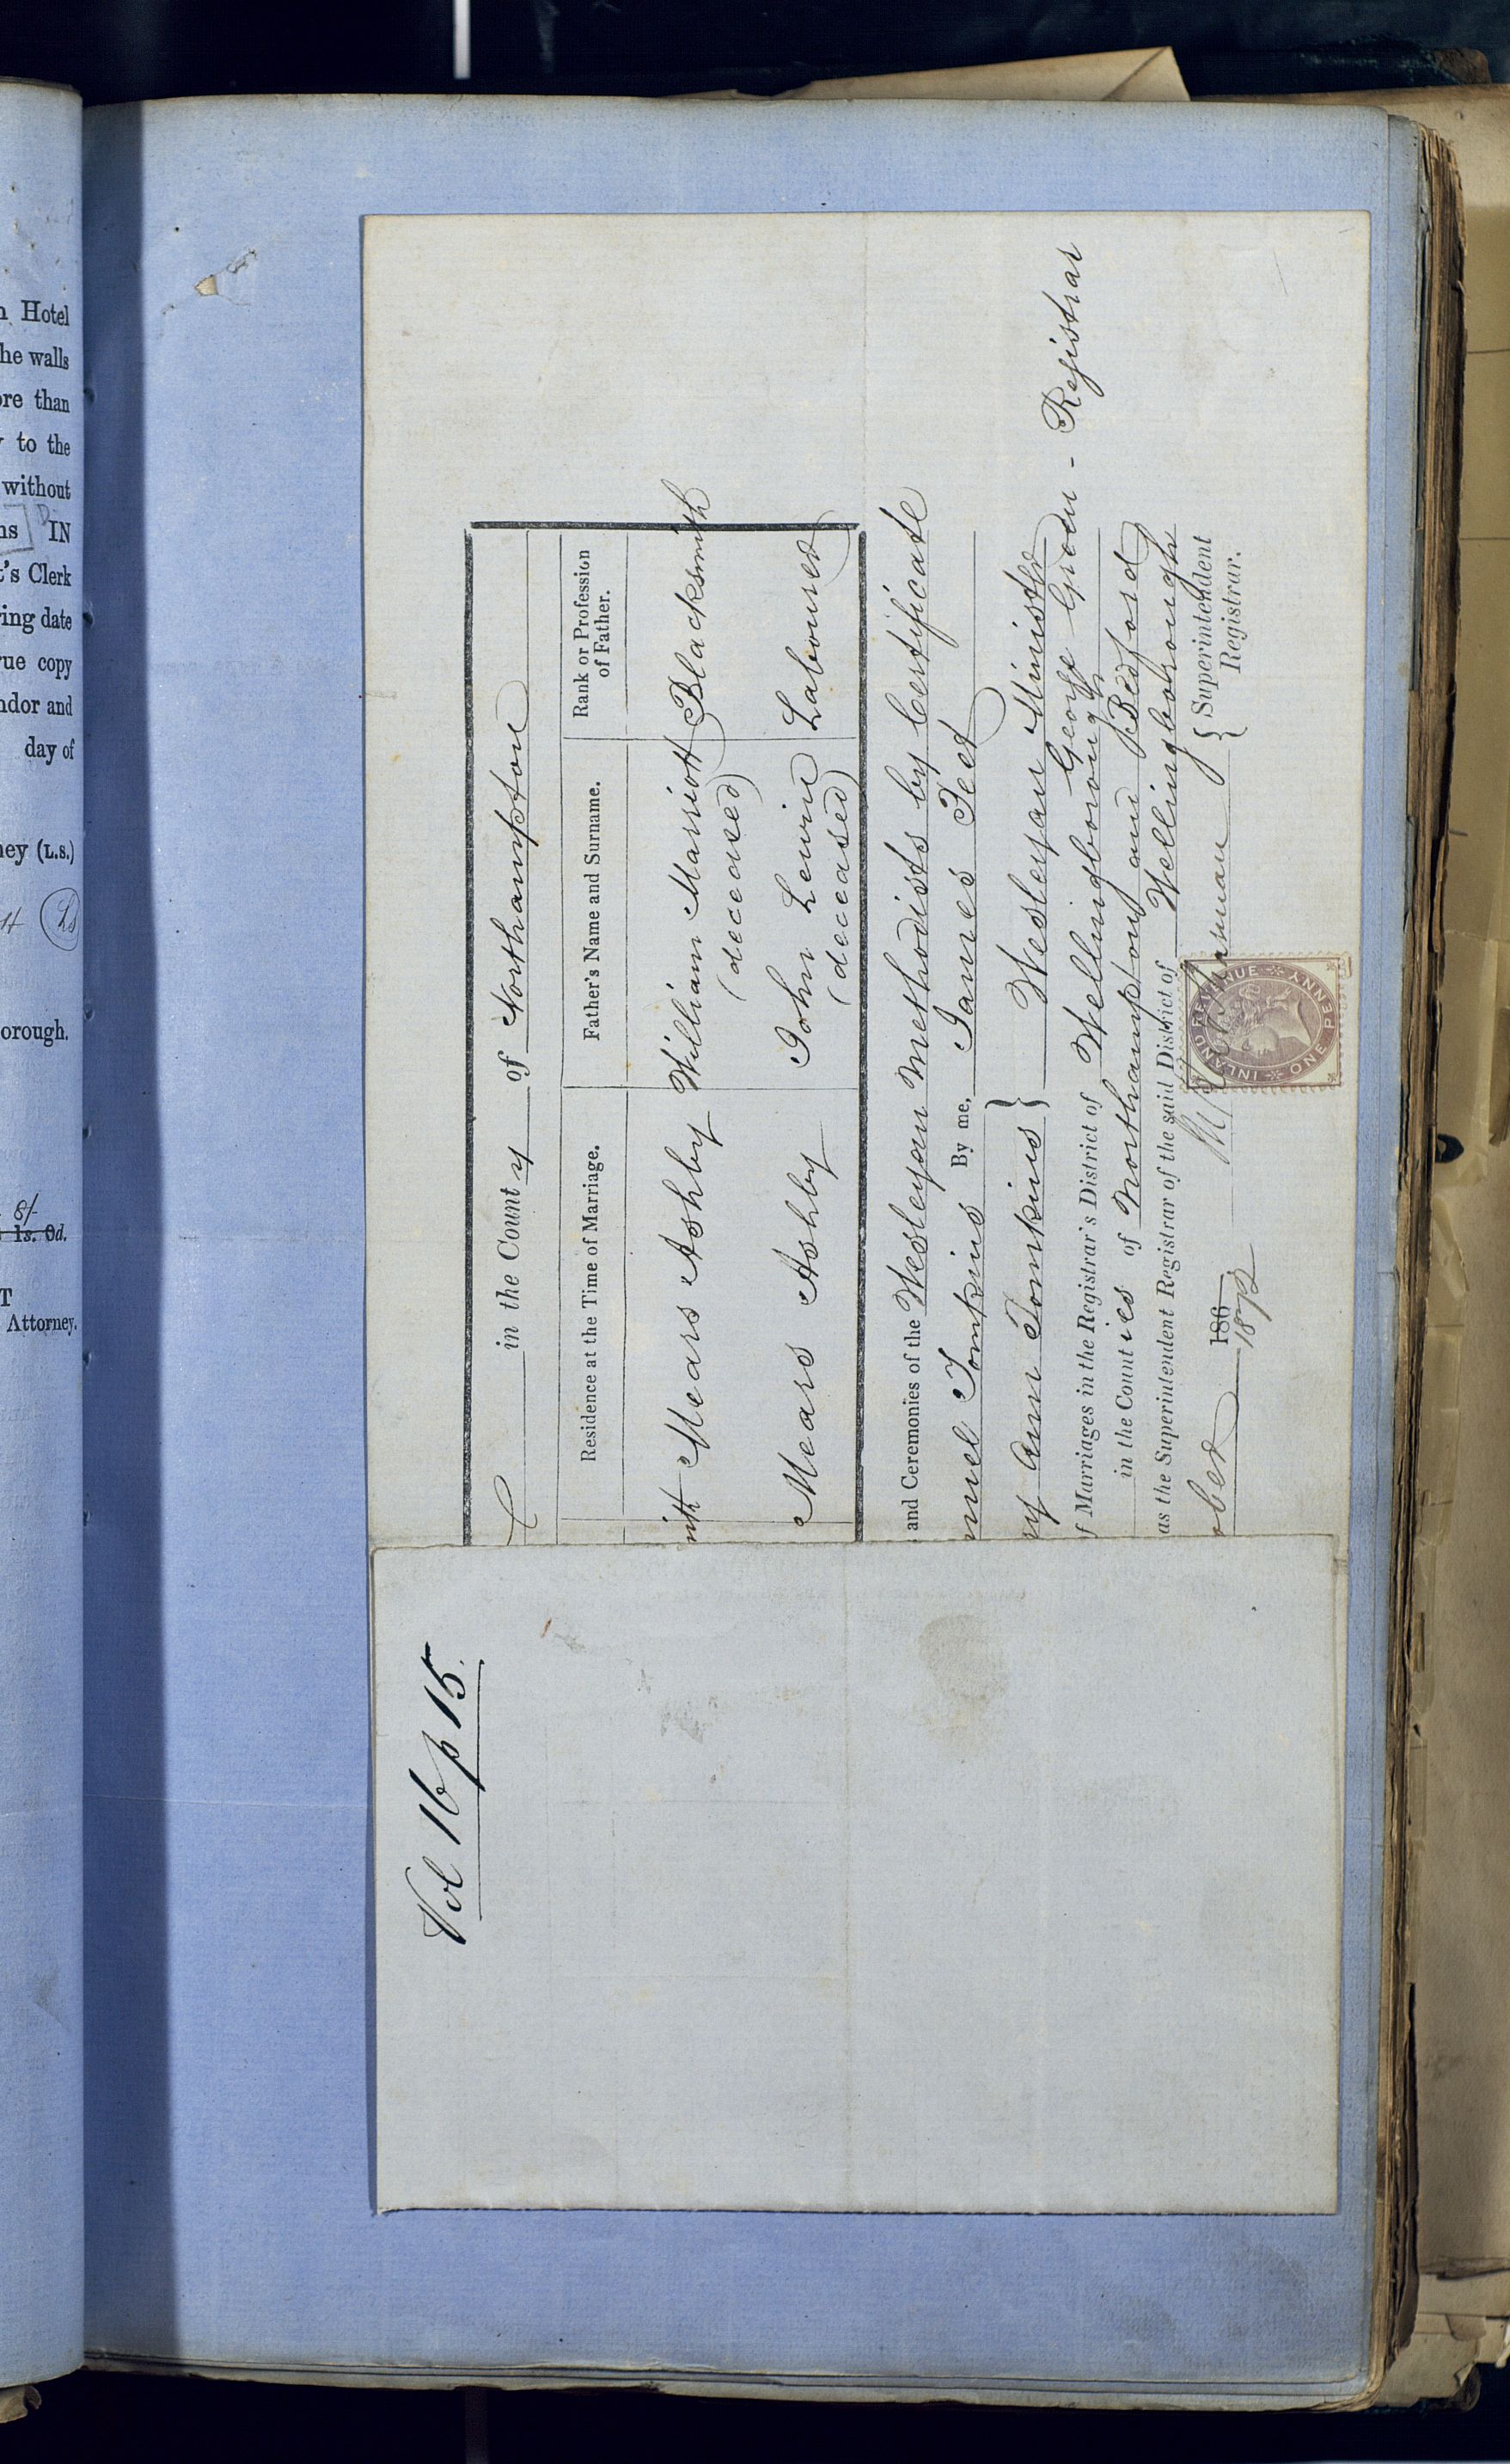 n Hotel
he walls
ore than
y to the
without
ns IN
t's Clerk
ring date
rue copy
ndor and
day of
ney (L.S.)
LS
orough.
8/-
1s. 0d.
T
Attorney.
in the County of Northampton
Residence at the Time of Marriage. Father's Name and Surname. Rank or Profession of Father.
Mears Ashby William Marriott (deceased) Blacksmith
Mears Ashby John Lewin (deceased) Labourer
and Ceremonies of the Wesleyan Methodists by Certificate
muel Tomkins By me, James Feer
ry Ann Tomkins } Wesleyan Minister
George Green - Registrar
f Marriages in the Registrar's District of Wellingborough
in the Counties of Northampton and Bedford
as the Superintendent Registrar of the said District of Wellingborough
ober 186 1872 { Superintendent Registrar.
INLAND REVENUE
ONE PENNY
Vol 16 p 15.